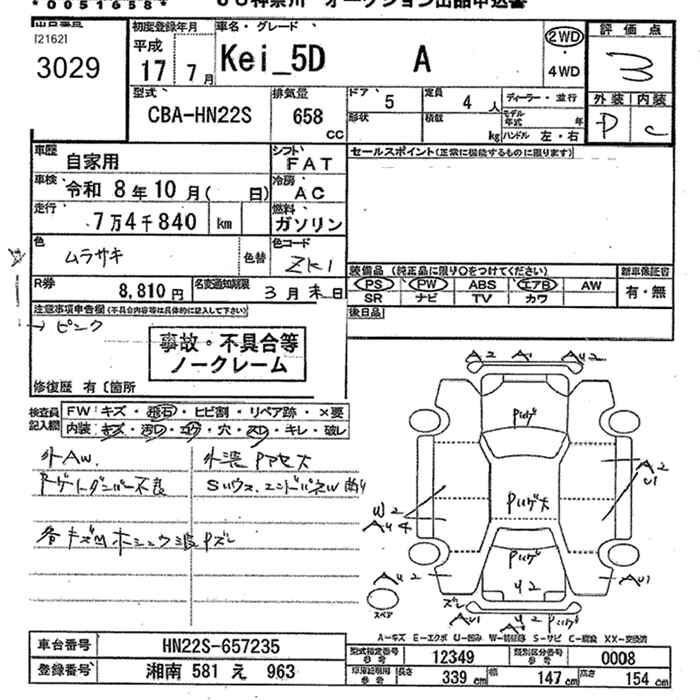 *0051658*
オークション出品申込書
[2162]
3029
初度登録年月
平成
17 7月
車名・グレード
Kei_5D A
2WD
・
4WD
評価点
3
外装 内装
D C
型式
CBA-HN22S
排気量
658 cc
ドア 5
定員 4人
形状
積載 kg
ディーラー・並行
モデル年式 年
ハンドル 左・右
車歴 自家用
シフト FAT
車検 令和 8年10月( 日)
冷房 AC
走行 7万4千840 km
燃料 ガソリン
色 ムラサキ
色替
色コード ZK1
R券 8,810円
名変通知期限 3月末日
セールスポイント(正常に機能するものに限ります)
装備品(純正品に限り○をつけてください)
新車保証書
PS PW ABS エアB AW
有・無
SR ナビ TV カワ
後日品
注意事項申告欄(不具合内容等は具体的に記入して下さい)
→ピンク
事故・不具合等
ノークレーム
修復歴 有〔箇所
検査員
記入欄
FW:キズ・飛石・ヒビ割・リペア跡・×要
内装:キズ・汚レ・コゲ・穴・スレ・キレ・破レ
外AW.
Rゲートダンパー不良
A2 A1 AU2
Pハゲ
Pハゲ大
Pハゲ
U2
A2
U1
W2
AU4
AU2
AU1
ズレ
AU1 A2 Pハゲ
スペア
A-キズ E-エクボ U-凹み W-補修跡 S-サビ C-腐食 XX-交換済
車台番号 HN22S-657235
登録番号 湘南 581 え 963
型式指定番号 12349
類別区分番号 0008
長さ 339 cm 幅 147 cm 高さ 154 cm